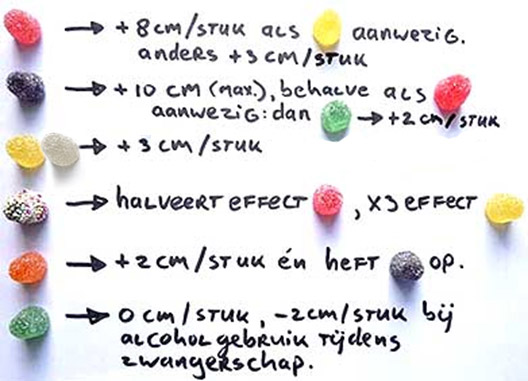 → + 8 cm/stuk als aanwezig.
anders + 3 cm/stuk
→ + 10 cm (max.), behalve als
aanwezig: dan → +2 cm/stuk
→ + 3 cm/stuk
→ halveert effect , x3 effect
→ +2 cm/stuk én heft op.
→ 0 cm/stuk, -2cm/stuk bij
alcoholgebruik tijdens
zwangerschap.